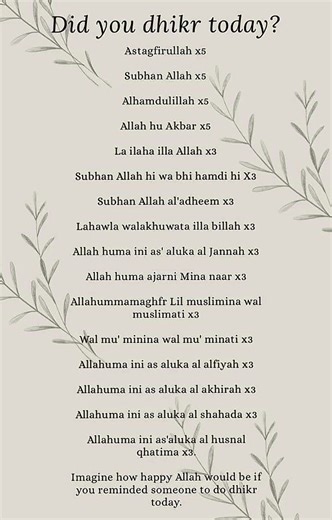 Did you dhikr today?
Astagfirullah x5
Subhan Allah x5
Alhamdulillah x5
Allah hu Akbar x5
La ilaha illa Allah x3
Subhan Allah hi wa bhi hamdi hi X3
Subhan Allah al'adheem x3
Lahawla walakhuwata illa billah x3
Allah huma ini as' aluka al Jannah x3
Allah huma ajarni Mina naar x3
Allahummamaghfr Lil muslimina wal
muslimati x3
Wal mu' minina wal mu' minati x3
Allahuma ini as aluka al alfiyah x3
Allahuma ini as aluka al akhirah x3
Allahuma ini as aluka al shahada x3
Allahuma ini as'aluka al husnal
qhatima x3.
Imagine how happy Allah would be if
you reminded someone to do dhikr
today.